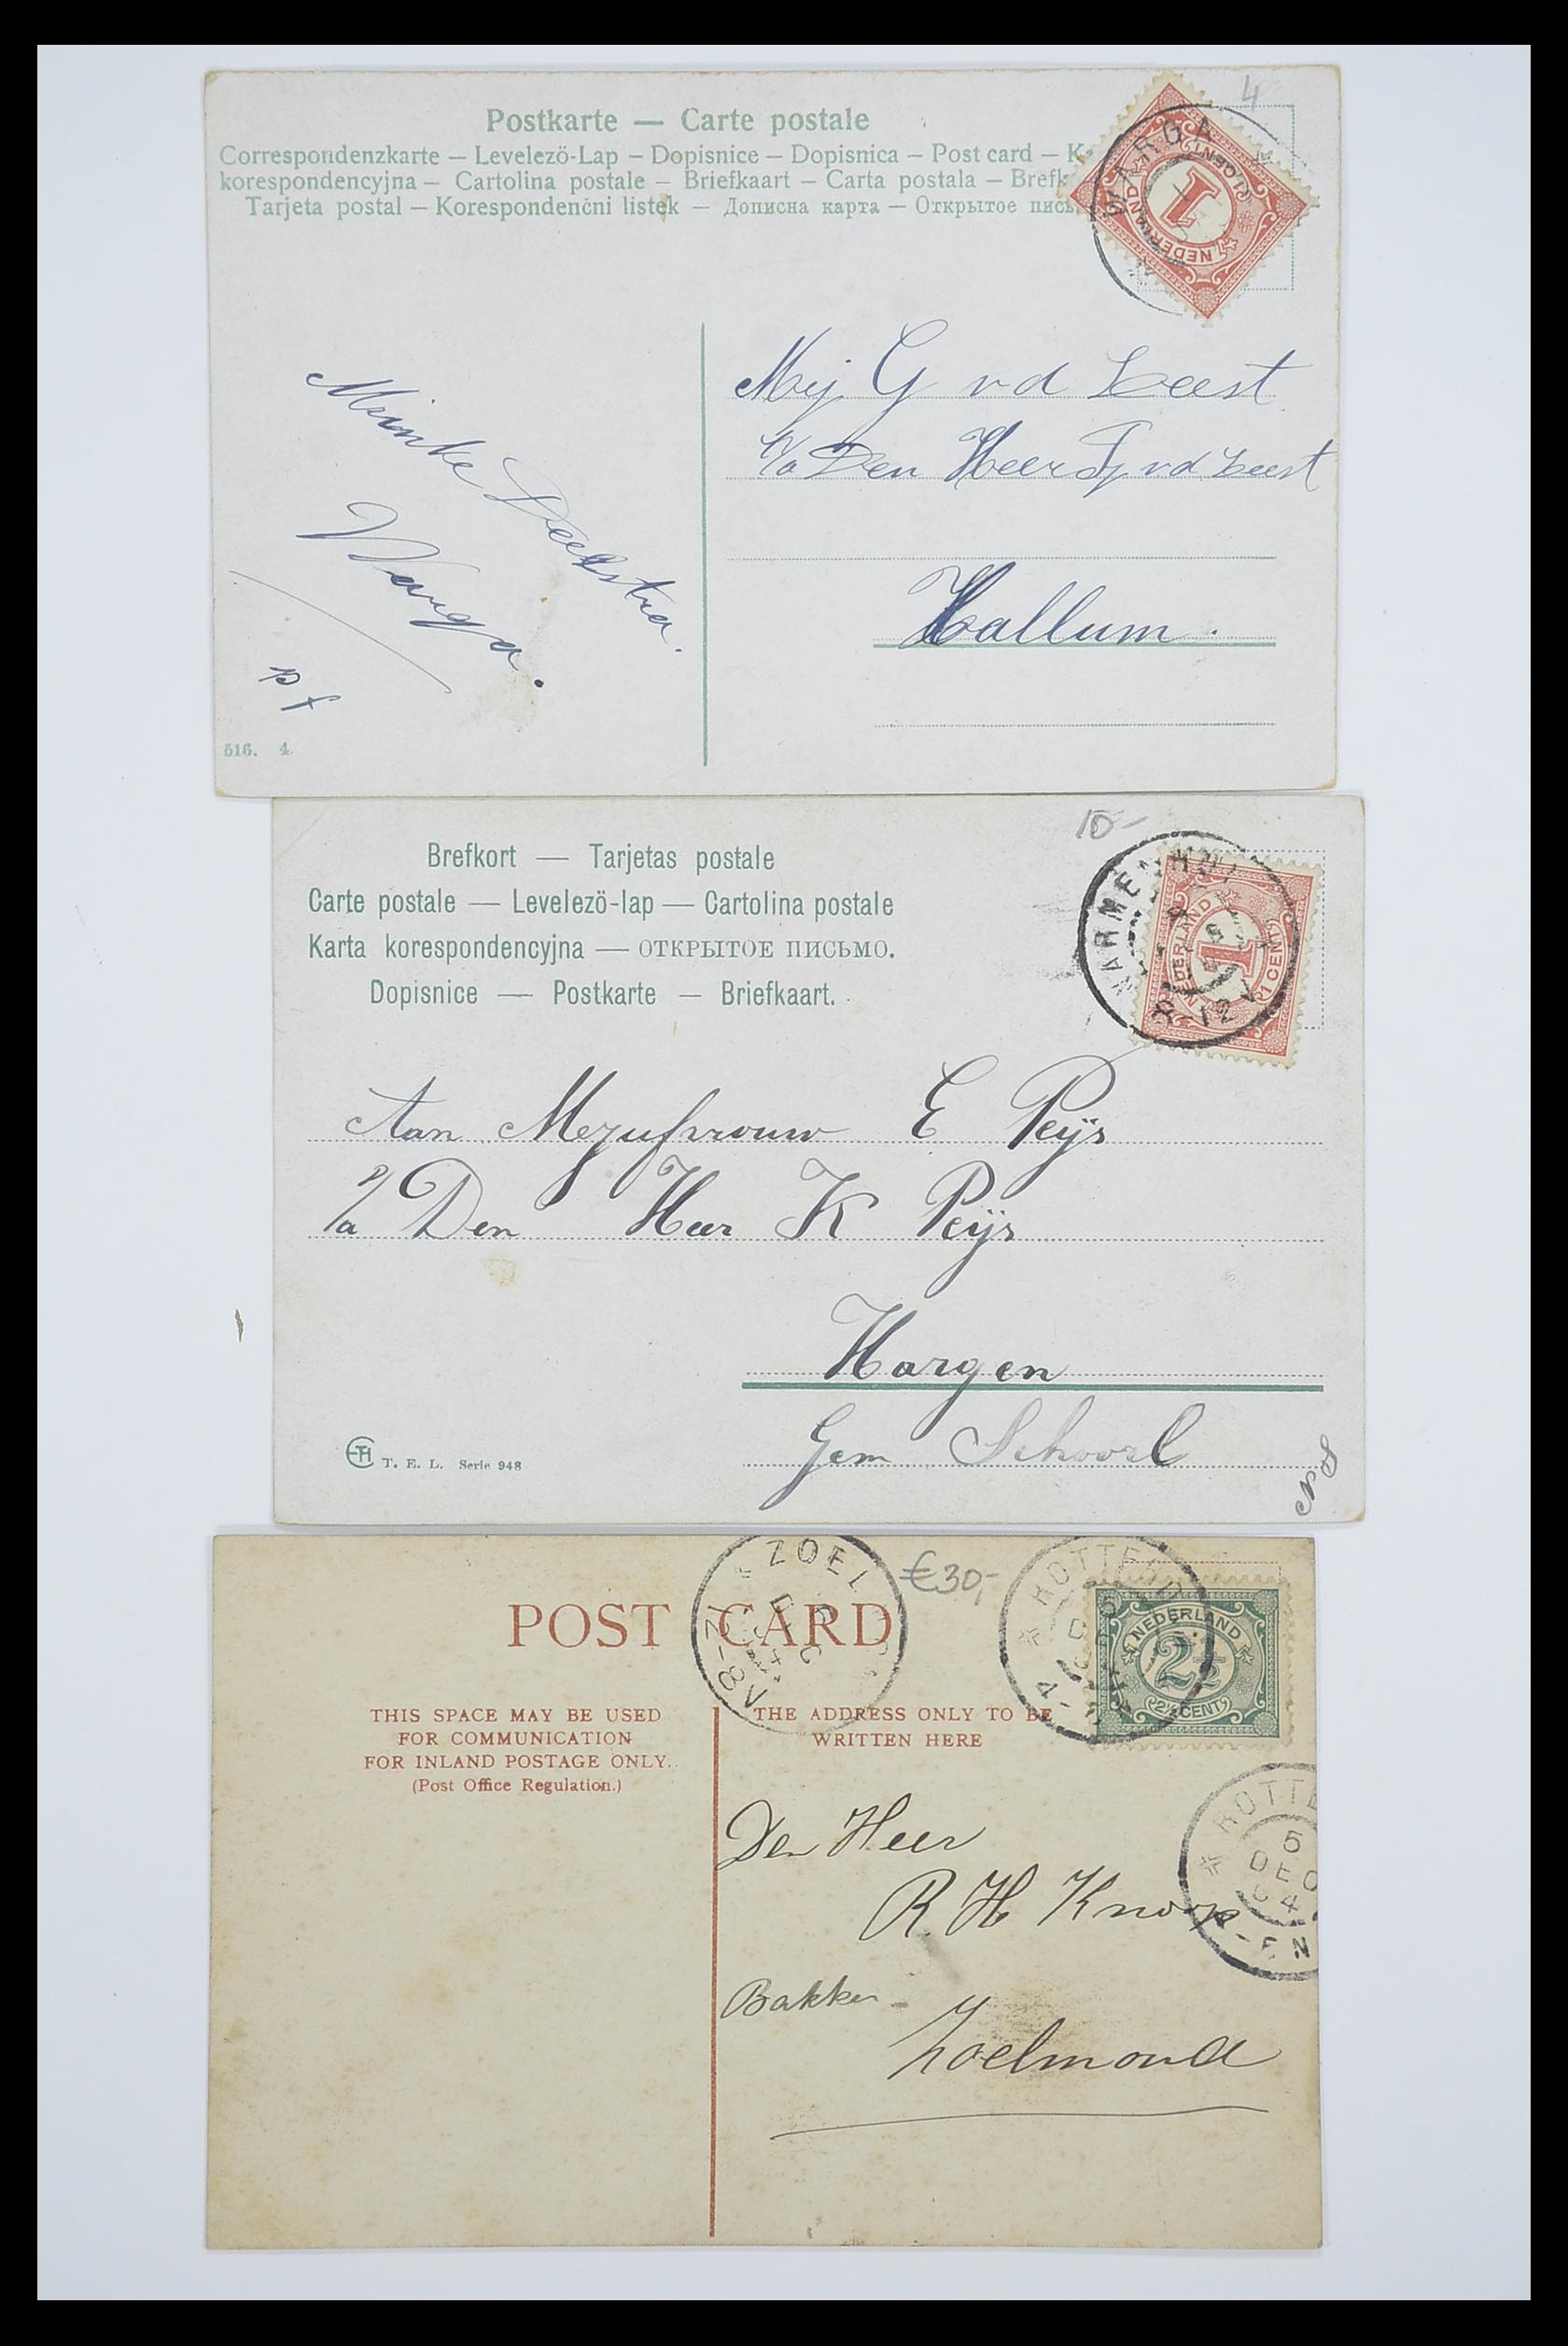 4
Postkarte — Carte postale
Correspondenzkarte — Levelezö-Lap — Dopisnice — Dopisnica — Post card — K
korespondencyjna — Cartolina postale — Briefkaart — Carta postala — Brefk
Tarjeta postal — Korespondenčni listek — Дописна карта — Открытое пись
WARGA
NEDERLAND
1
1 CENT
Mej G v d Leest
p/a Den Heer Tj v d Leest
Hallum.
Minke
Warga.
pf
516. 4.
10-
Brefkort — Tarjetas postale
Carte postale — Levelezö-lap — Cartolina postale
Karta korespondencyjna — ОТКРЫТОЕ ПИСЬМО.
Dopisnice — Postkarte — Briefkaart.
WARMENHUI
8-12V
NEDERLAND
1
1 CENT
Aan Mejufvrouw E Peijs
p/a Den Heer K Peijs
Hargen
Gem Schoorl
T. E. L. Serie 948
ZOEL
DEC
8V
€30,-
ROTTERD
NEDERLAND
2½
2½ CENT
POST CARD
THIS SPACE MAY BE USED
FOR COMMUNICATION
FOR INLAND POSTAGE ONLY.
(Post Office Regulation.)
THE ADDRESS ONLY TO BE
WRITTEN HERE
ROTTE
5
DEC
4
Den Heer
R. H Knoop
Bakker
Zoelmond